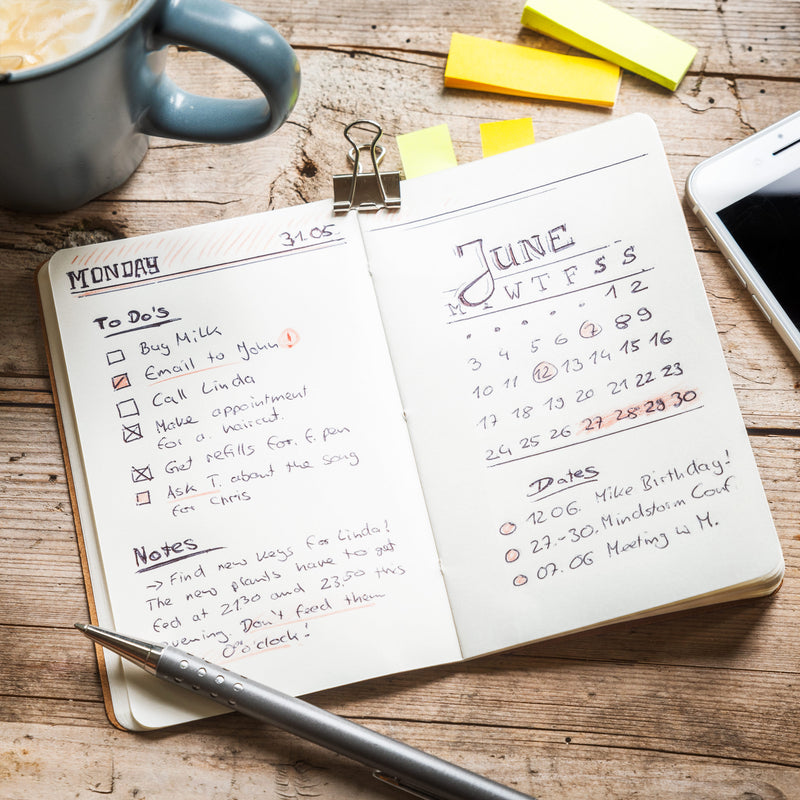 MONDAY 31.05.
To Do's
Buy Milk
Email to John !
Call Linda
Make appointment
for a haircut.
Get refills for f. pen
Ask T. about the song
for Chris
Notes
→ Find new keys for Linda!
The new plants have to get
fed at 2130 and 23.50 this
evening. Don't feed them
0°° o'clock!
JUNE
M T W T F S S
1 2
3 4 5 6 7 8 9
10 11 12 13 14 15 16
17 18 19 20 21 22 23
24 25 26 27 28 29 30
Dates
12 06. Mike Birthday!
27.-30. Mindstorm Conf.
07. 06 Meeting w M.